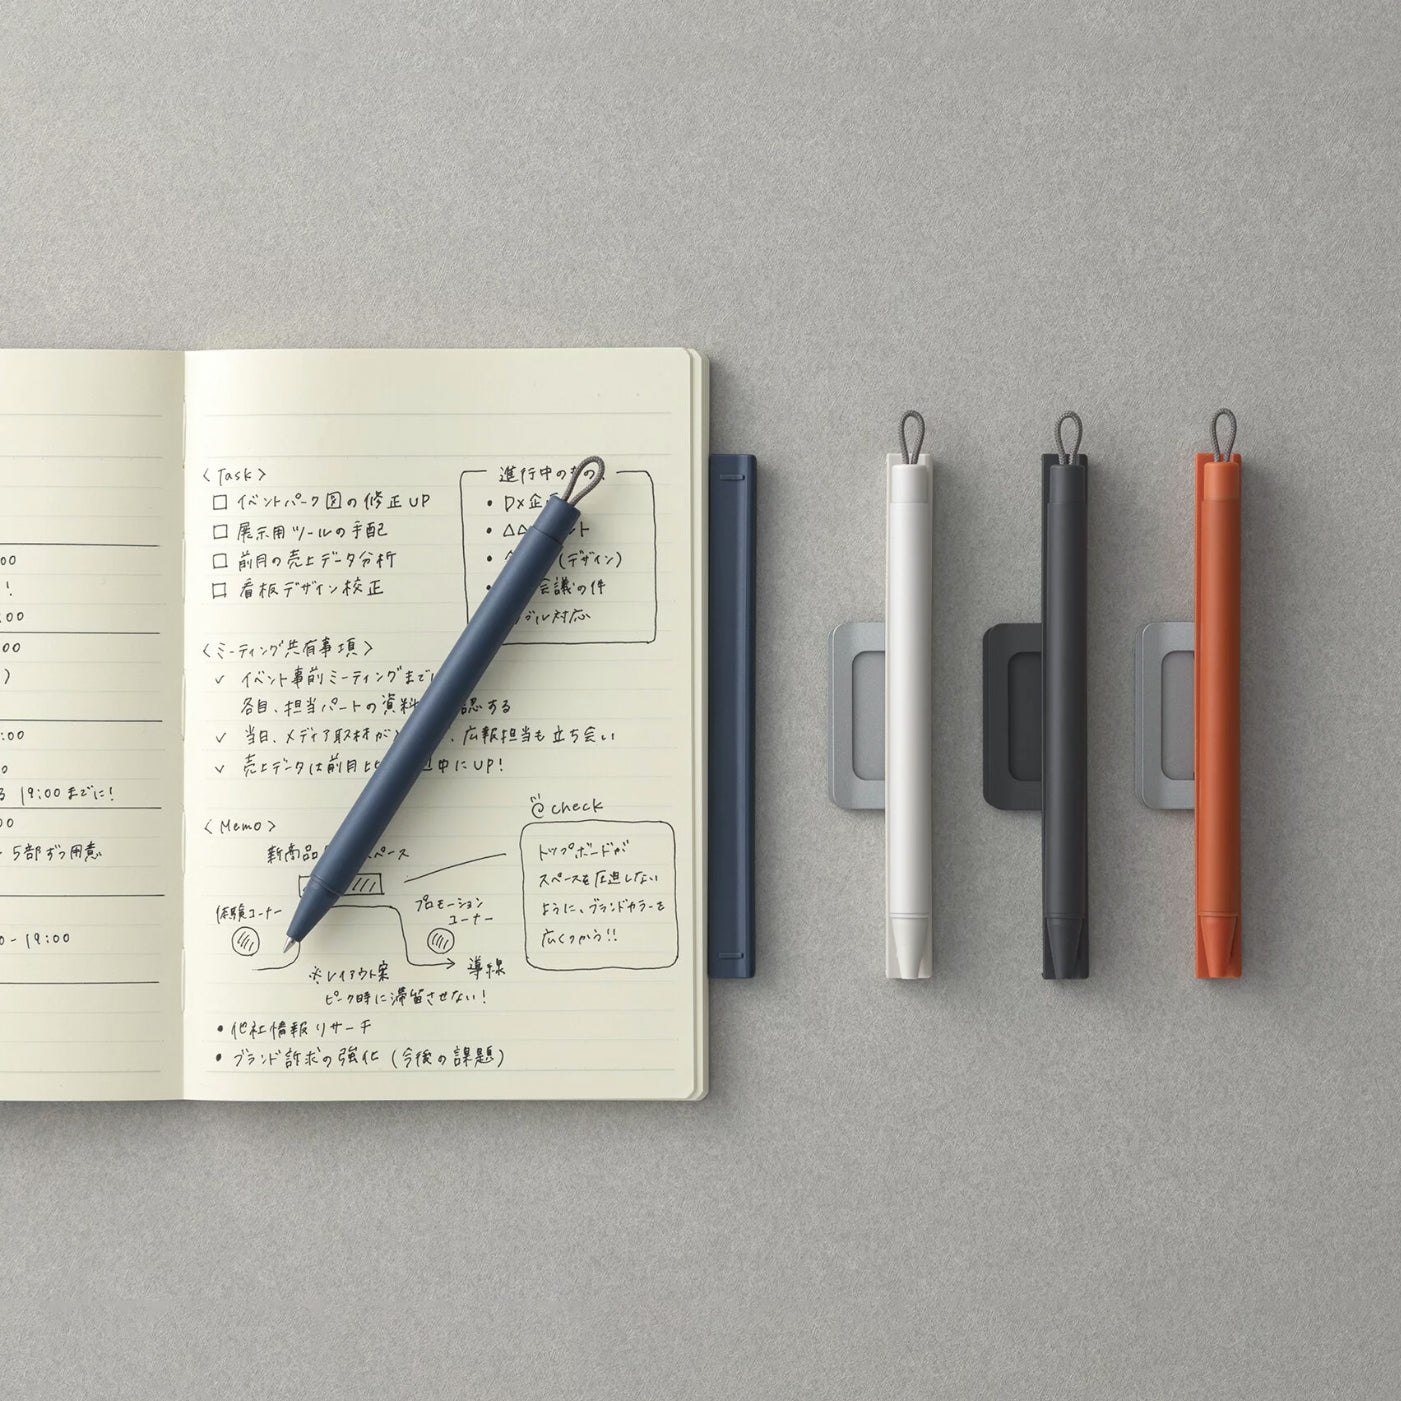 :00
!
:00
:00
)
:00
0
19:00までに!
00
5部ずつ用意
0-19:00
<Task>
□ イベントパーク図の修正UP
□ 展示用ツールの手配
□ 前月の売上データ分析
□ 看板デザイン校正
進行中の
• DX企
• △△ ント
• (デザイン)
• 会議の件
ブル対応
<ミーティング共有事項>
✓ イベント事前ミーティングまで
各自、担当パートの資料 認する
✓ 当日、メディア取材が 、広報担当も立ち会い
✓ 売上データは前月比 中にUP!
<Memo>
新商品 スペース
体験コーナー
プロモーション
コーナー
※レイアウト案
導線
ピーク時に滞留させない!
@check
トップボードが
スペースを圧迫しない
ように、ブランドカラーを
広くつかう!!
• 他社情報リサーチ
• ブランド訴求の強化(今後の課題)